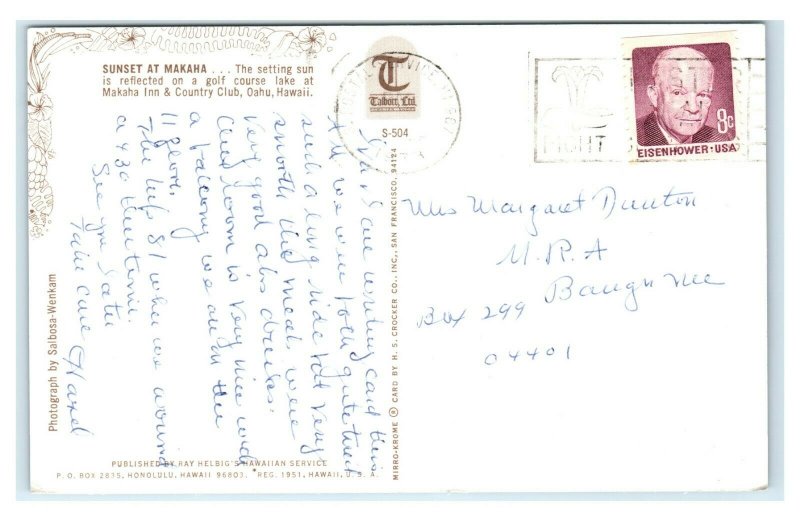 SUNSET AT MAKAHA . . . The setting sun
is reflected on a golf course lake at
Makaha Inn & Country Club, Oahu, Hawaii.
T
Talbott, Ltd.
S-504
8c
EISENHOWER·USA
Mrs Margaret Dunton
M.R.A
Box 299 Bangor Me
04401
I am writing card this
we were both quite tired
such a long ride but very
smooth the meals were
very good also drinks.
Our room is very nice with
a balcony we are on the
11 floor.
The temp 81 when we arrived
at 430 their time.
See you later
Take care Hazel
Photograph by Salbosa-Wenkam
MIRRO-KROME ® CARD BY H. S. CROCKER CO., INC., SAN FRANCISCO, CA. 94124
PUBLISHED BY RAY HELBIG'S HAWAIIAN SERVICE
P. O. BOX 2835, HONOLULU, HAWAII 96803. REG. 1951, HAWAII, U. S. A.